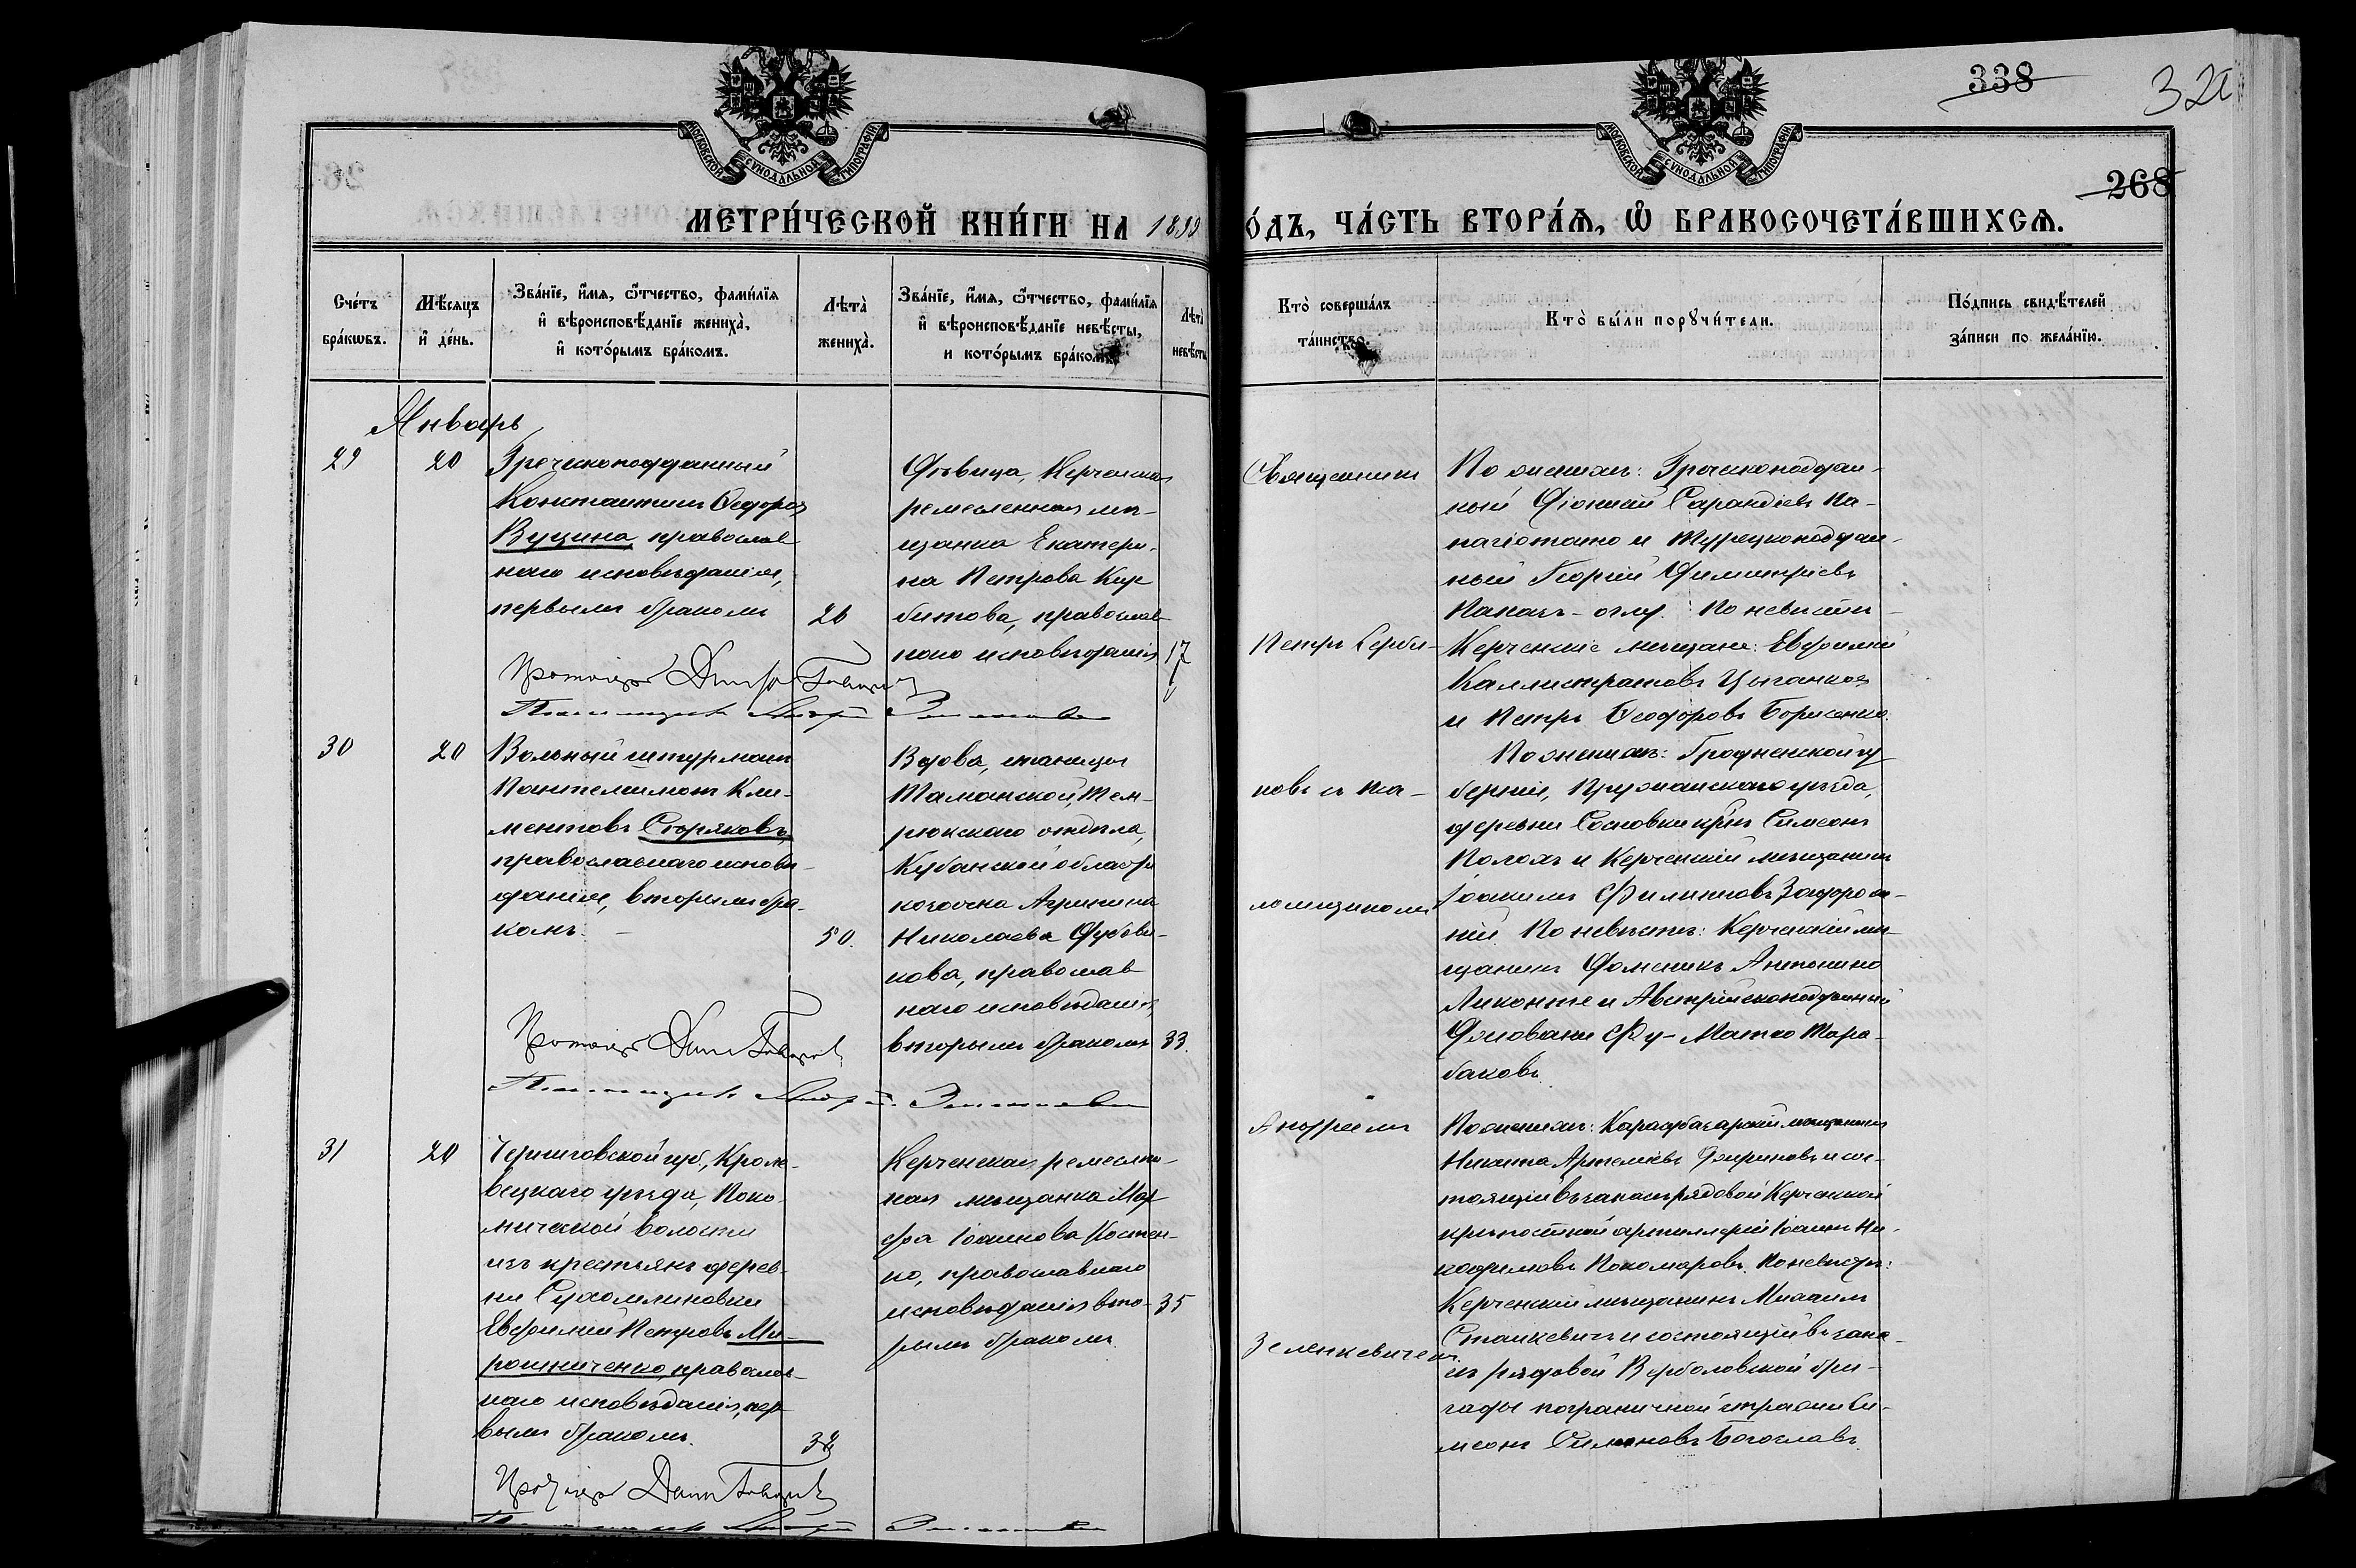 338
32
268
МОСКОВСКОЙ СУНОДАЛЬНОЙ ТИПОГРАФIИ
МОСКОВСКОЙ СУНОДАЛЬНОЙ ТИПОГРАФIИ
МЕТРИ́ЧЕСКОЙ КНИ́ГИ НА 1899
О́ДЪ, ЧА́СТЬ ВТОРА́Ѧ, Ѽ БРАКОСОЧЕТА́ВШИХСѦ.
Сче́тъ бра́кѡвъ.
Мѣ́сяцъ и҆ де́нь.
Зва́нїе, и҆́мѧ, ѻ҆́тчество, фами́лїя
и҆ вѣроисповѣ́данїе жениха̀,
и҆ кото́рымъ бра́комъ.
Лѣта̀ жениха̀.
Зва́нїе, и҆́мѧ, ѻ҆́тчество, фами́лїя
и҆ вѣроисповѣ́данїе невѣ́сты,
и кото́рымъ бра́комъ
Лѣта̀ невѣ́сты
Кто̀ соверша́лъ
та́инство.
Кто̀ бы́ли порꙋчи́тели.
По́дпись свидѣ́телей
за́писи по жела́нїю.
Январь
29
20
Греческоподданный
Константинъ Ѳеодоров
Вуцина, православ
наго исповѣданія,
первымъ бракомъ
26
Дѣвица, Керченская
ремесленная мѣ-
щанка Екатери-
на Петрова Кур
битова, православ
наго исповѣданія
17
Священникъ
По женихѣ: Греческоподдан-
ный Діонисій Сарандіевъ Па-
нагіотато и Турецкоподдан-
ный Георгій Димитріевъ
Папазъ-оглу. По невѣстѣ
Петръ Серби-
Керченскіе мѣщане: Евфимій
Каллистратовъ Цыганков
и Петръ Ѳеодоровъ Борисенко.
Протоіерей
30
20
Вольный штурманъ
Пантелеимонъ Кли-
ментовъ Столяковъ,
православнаго исповѣ-
данія, вторымъ бра-
комъ. -
50.
Вдова, станицы
Таманской, Тем-
рюкскаго отдѣла,
Кубанской области
казачка Агрипина
Николаева Дубови-
кова, православ
наго исповѣданія,
вторымъ бракомъ
33.
новъ съ пса-
ломщикомъ
По женихѣ: Гродненской гу
берніи, Пружанскаго уѣзда,
деревни Сосновки крнъ Симеонъ
Полохъ и Керченскій мѣщанинъ
Іоакимъ Филиповъ Задорож-
ній. По невѣстѣ: Керченскій мѣ-
щанинъ Доменикъ Антонино
Ликонте и Австрійскоподданный
Джовани Фу-Матео Тара-
баковъ.
Протоіерей
31
20
Черниговской губ., Кроле-
вецкаго уѣзда, Поно-
рницкой волости
изъ крестьянъ дерев-
ни Сухомлиновки
Евфимій Петровъ Ми-
рошниченко, православ-
наго исповѣданія, пер
вымъ бракомъ.
32
Керченская ремеслен-
ная мѣщанка Мар
ѳа Іоаннова Костен-
ко, православнаго
исповѣданія вто-
рымъ бракомъ.
35
Андреемъ
Зеленкевичемъ
По женихѣ: Карасубазарскій мѣщанинъ
Никита Артеміевъ Дзыриновъ и сос-
тоящій въ запасѣ рядовой Керченской
крѣпостной артиллеріи Іоаннъ Ни-
кодимовъ Пономаровъ. По невѣстѣ:
Керченскій мѣщанинъ Михаилъ
Станкевичъ и состоящій въ запа-
сѣ рядовой Вержболовской бри-
гады пограничной стражи Си-
меонъ Симоновъ Богославъ
Протоіерей